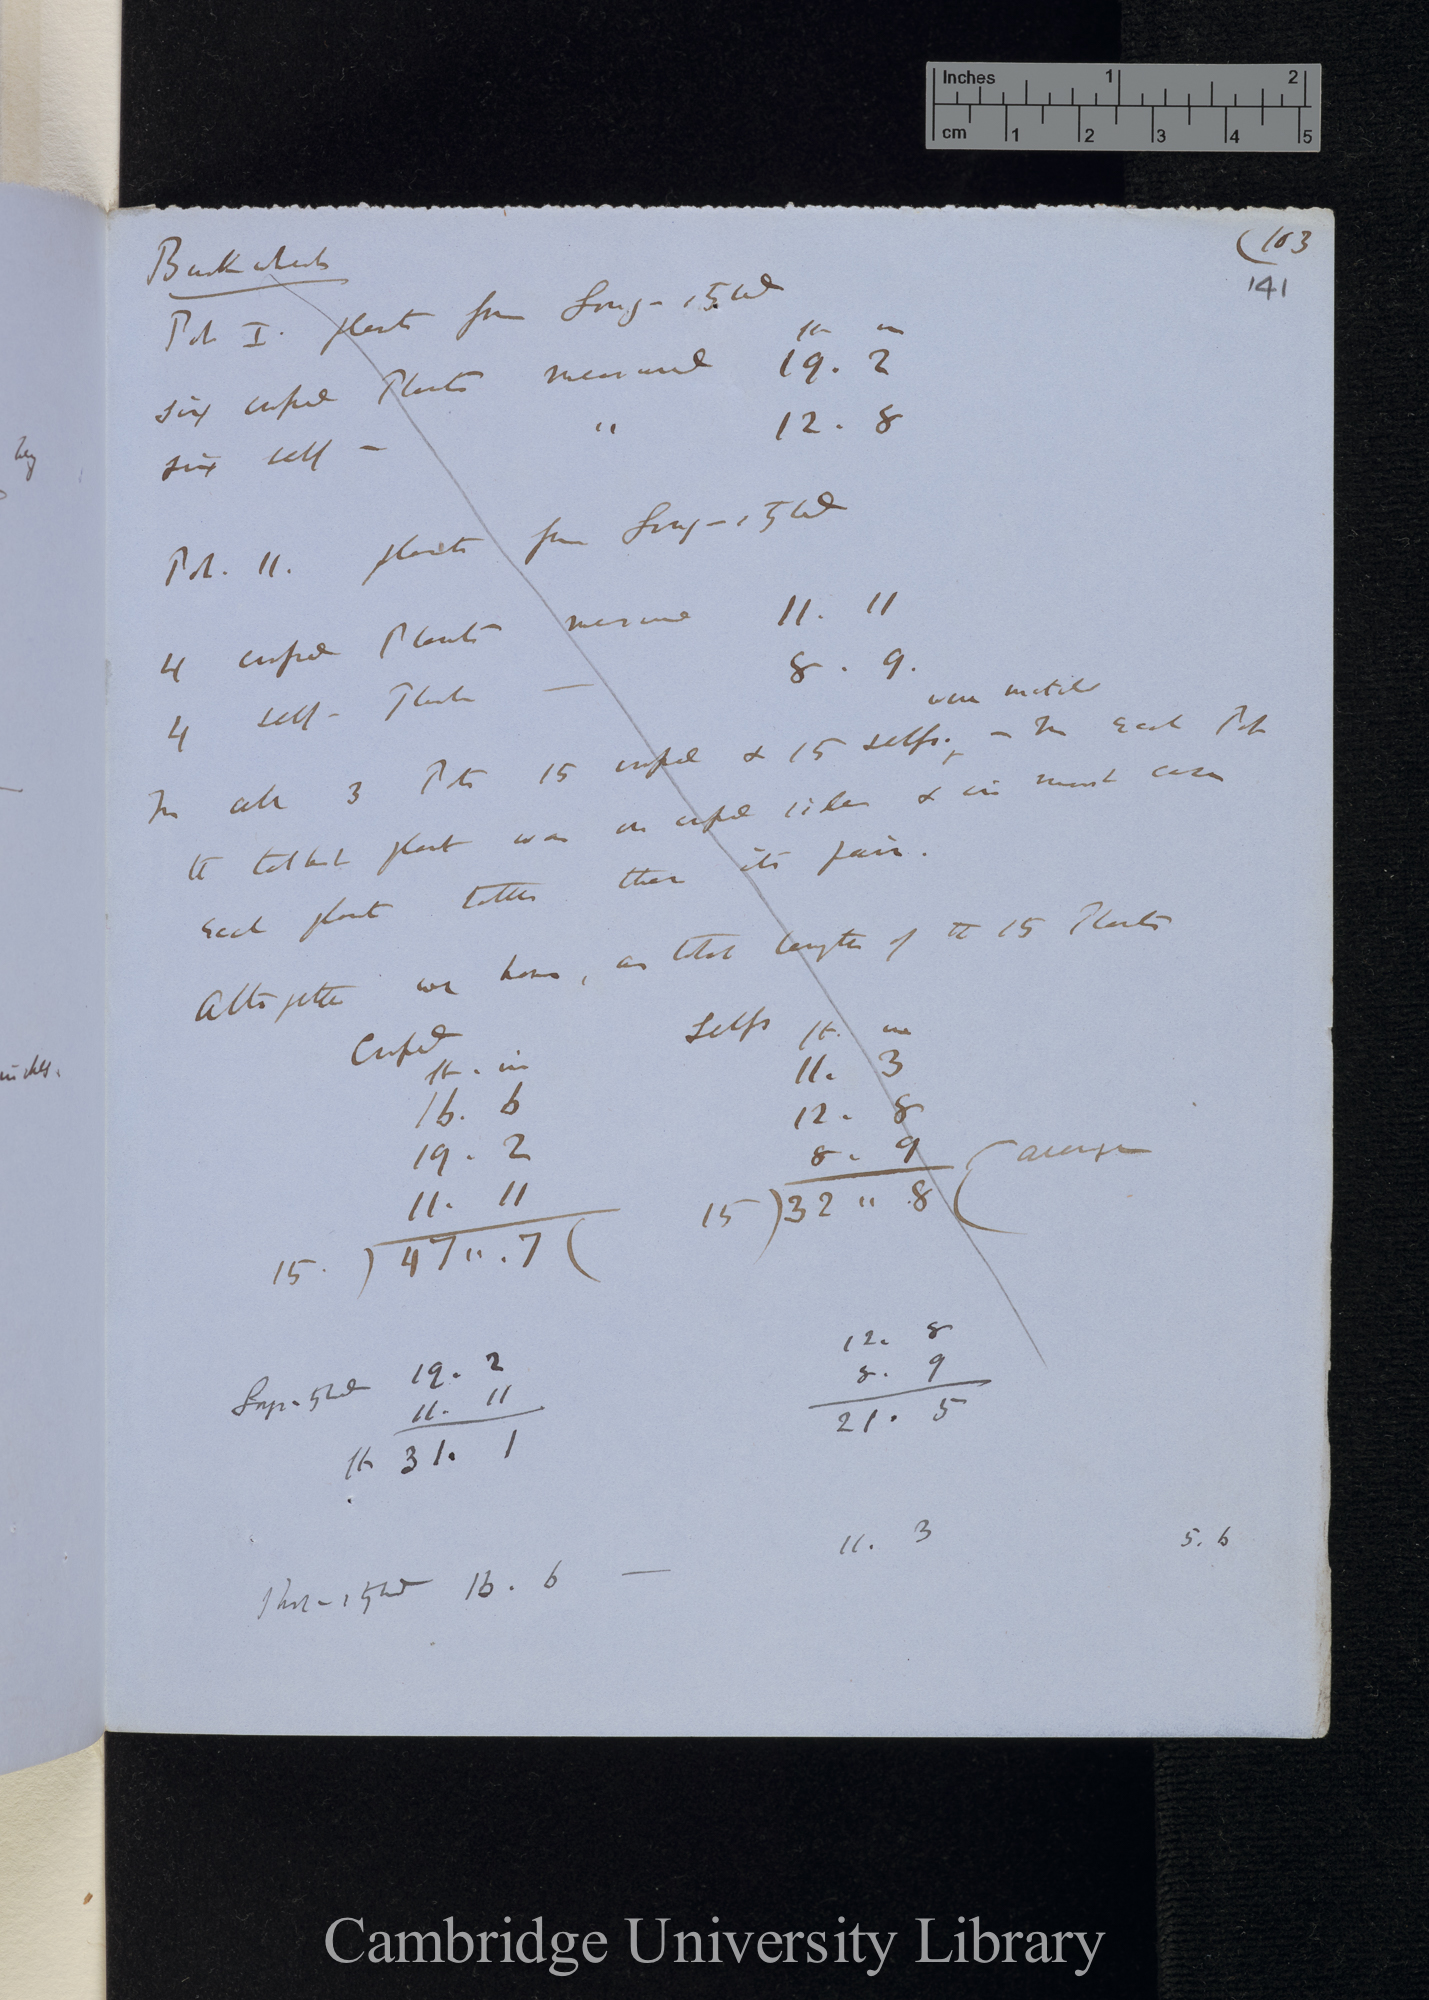 Inches 1 2
cm 1 2 3 4 5
(103
141
Buckwheat
Pot I. plants from long-styled
ft in
six crossed Plants measured 19. 2
six self — " 12. 8
Pot. II. plants from long-styled
4 crossed Plants measured 11. 11
4 self- Plants — 8. 9.
were matched
In all 3 Pots 15 crossed & 15 selfs, — In each Pot
the tallest plant was on crossed side & in most cases
each plant taller than its pair.
Altogether we have, as total length of the 15 Plants
Crossed Selfs ft. in
ft. in 11. 3
16. 6 12. 8
19. 2 8. 9
11. 11 15 ) 32 " 8 ( average
15. ) 47 ". 7 (
12. 8
Long-styled 19. 2 8. 9
11. 11 21. 5
ft 31. 1
11. 3 5. 6
Short-styled 16. 6 —
hey
inches.
Cambridge University Library